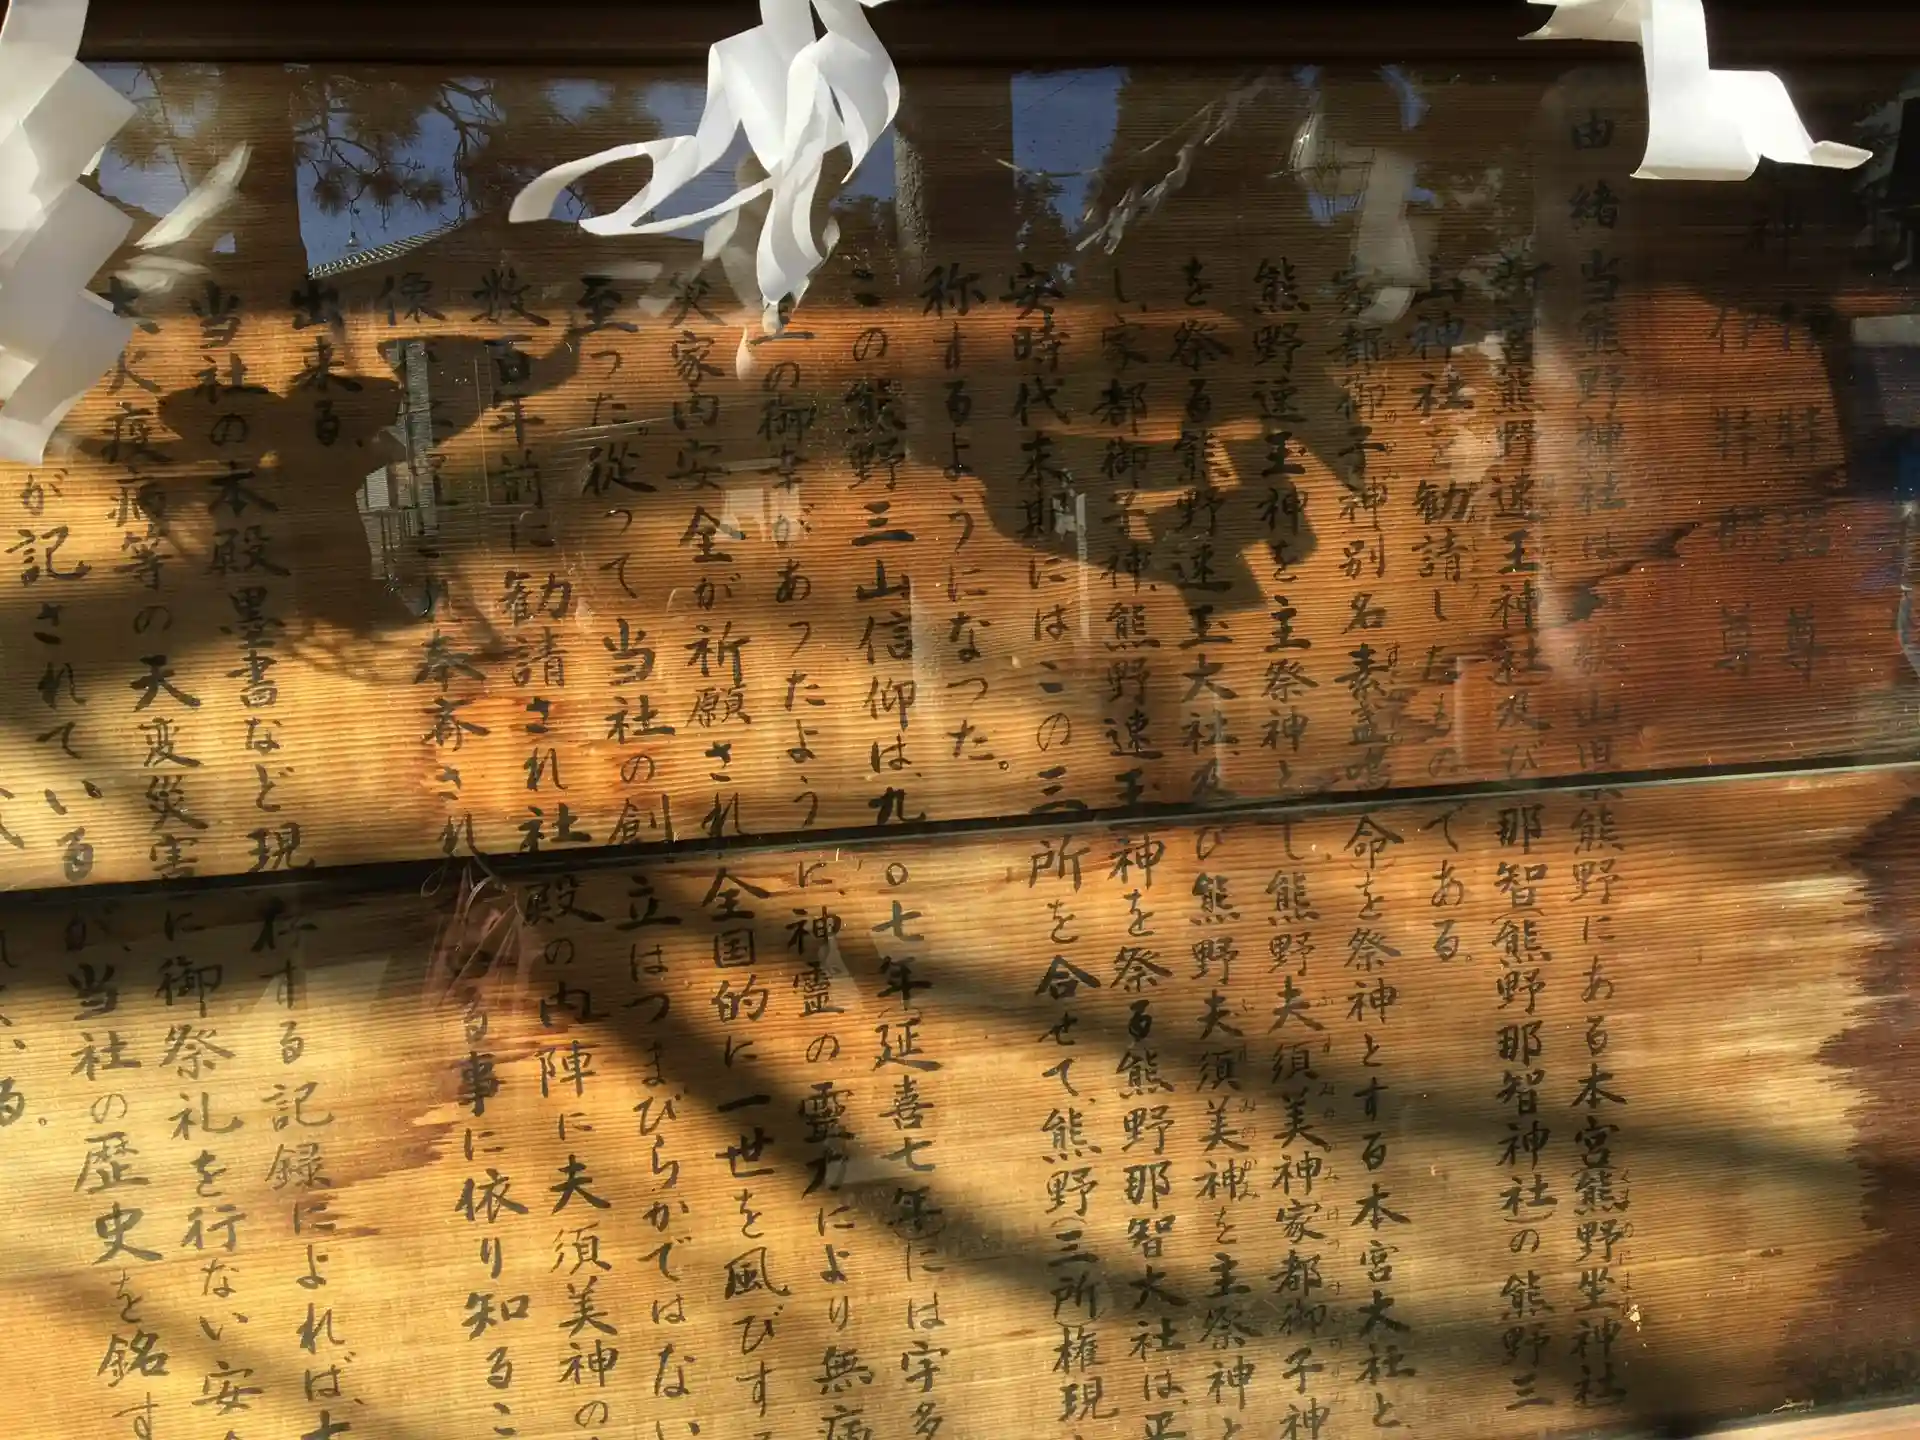 神 伊弉諾尊
伊弉冊尊
由緒 当熊野神社は 熊野にある本宮熊野坐神社
新宮熊野速玉神社及び那智(熊野那智神社)の熊野三
山神社を勧請したものである。
家都御子神別名素盞嗚命を祭神とする本宮大社と、
熊野速玉神を主祭神とし熊野夫須美神家都御子神
を祭る熊野速玉大社、及び熊野夫須美神を主祭神と
し、家都御子神、熊野速玉神を祭る熊野那智大社は、平
安時代末期にはこの三所を合せて、熊野(三所)権現
称するようになった。
この熊野三山信仰は、九〇七年(延喜七年)には宇多
の御幸があったように、神霊の霊力により無病
災家内安全が祈願され全国的に一世を風びす
至った。従って当社の創立はつまびらかではない
数百年前に勧請され社殿の内陣に夫須美神の
像 され奉斎されている事に依り知るこ
出来る、
当社の本殿墨書など現存する記録によれば、
大火疫病等の天変災害に御祭礼を行ない安
が記されているが、当社の歴史を銘す
る。